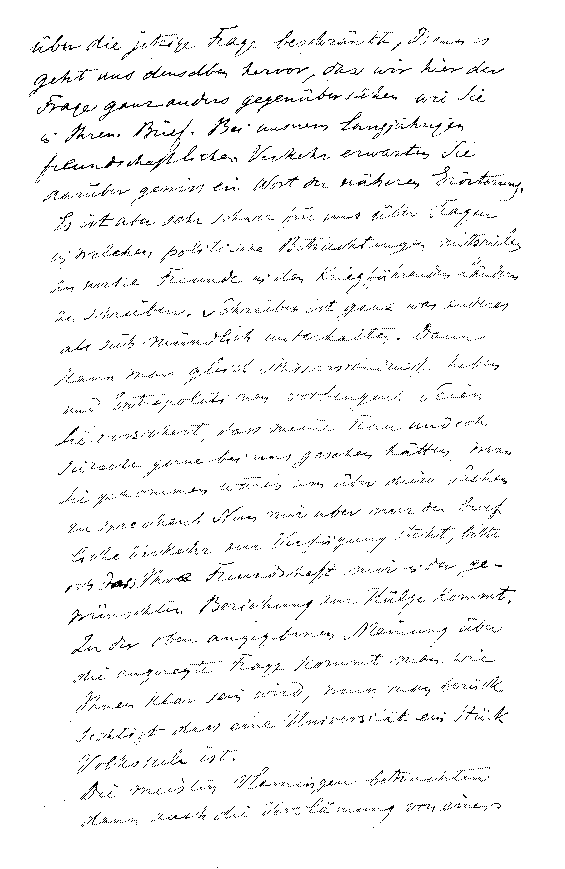 über die jetzige Frage beschränkt, Diesen is
geht aus denselben hervor, dass wir hier der
Frage ganz anders gegenüberstehen wie Sie
in Ihren Brief. Bei unsrem langjährigen
freundschaftlichen Verkehr erwarten Sie
darüber gewiss ein Wort der näheren Erörterung.
Es ist aber sehr schwer für uns über Fragen
in welchen politische Betrachtungen mitspielen
an unsre Freunde in den Kriegführenden Ländern
zu schreiben. Schreiben ist ganz was anderes
als sich mündlich unterhalten. Dann
kann man gleich Missverständniss heben
und vorbeugen. Seien
Sie versichert, dass meine Frau und ich
gerne bei uns gesehen hätten, wenn
Sie gekommen wären um über diese Sachen
zu sprechen! Nun mir aber nur der brief
liche Verkehr zur Verfügung steht, bitte
ich dass Ihre Freundschaft mir in der ge-
wünschten Beziehung zur Hülfe kommt.
Zu der oben angegebenen Meinung über
die angeregte Frage kommt man wie
Ihnen klar sein wird, wenn man berück
sichtigt dass eine Universität ein Stück
Volksseele ist.
Die meisten Vlamingen betrachten
dann auch die von einer